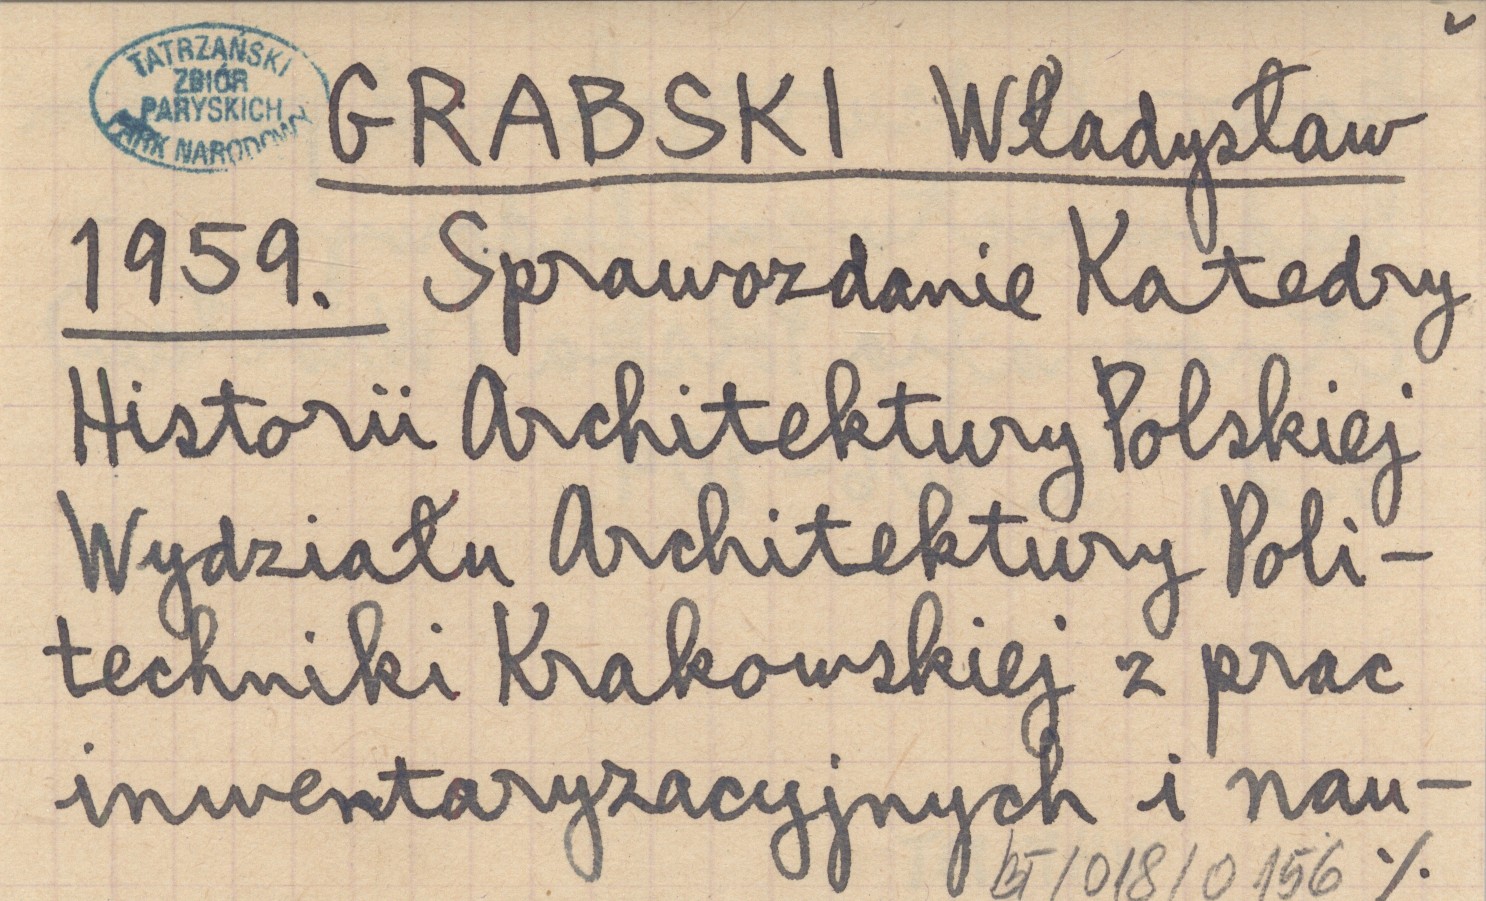 TATRZAŃSKI
ZBIÓR
PARYSKICH
PARK NARODOWY
GRABSKI Władysław
1959. Sprawozdanie Katedry
Historii Architektury Polskiej
Wydziału Architektury Poli-
techniki Krakowskiej z prac
inwentaryzacyjnych i nau-
BT/018/0156 ./.